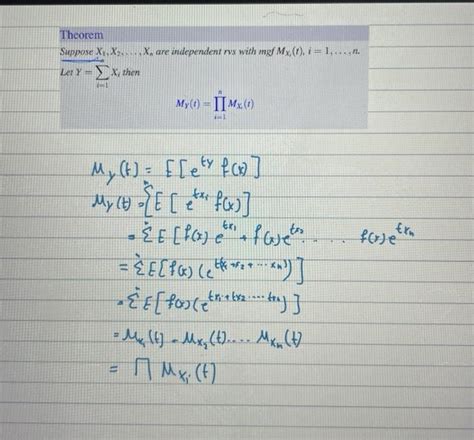 Theorem
Suppose X₁, X₂, . . . , Xₙ are independent rvs with mgf M_{Xᵢ}(t), i = 1, . . . , n.
Let Y = ∑_{i=1}^{n} Xᵢ then
M_Y(t) = ∏_{i=1}^{n} M_{Xᵢ}(t)
M_y(t) = E[e^{ty} f(x)]
M_y(t) = ∑E[e^{txᵢ} f(x)]
= ∑ E[f(x) e^{tx₁} + f(x)e^{tx₂} . . . . . f(x)e^{txₙ}
= ∑ E[f(x) (e^{t(x₁+x₂+ ... xₙ)})]
= ∑ E[f(x) (e^{tx₁+tx₂ .... txₙ})]
= M_{x₁}(t) - M_{x₂}(t) .... M_{xₙ}(t)
= ∏ M_{xᵢ}(t)